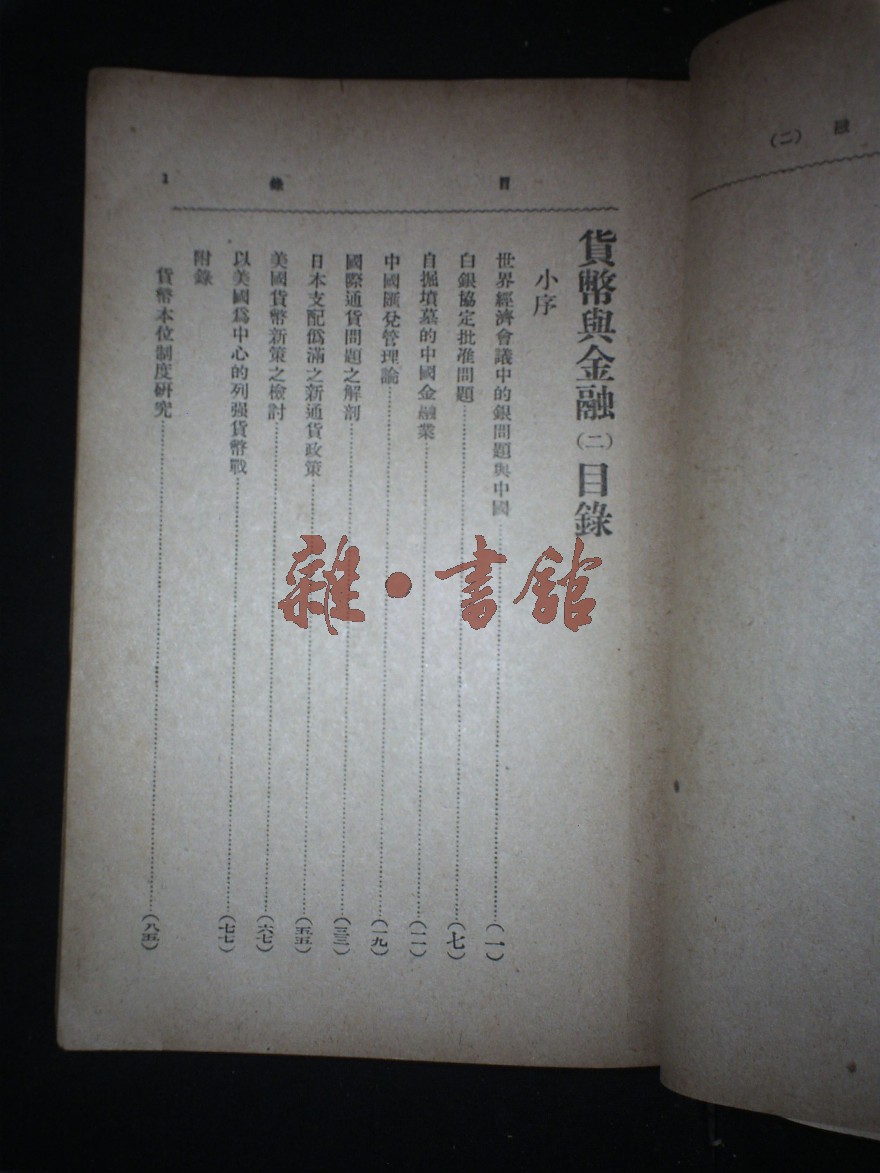 融 (二)
目 錄 1
貨幣與金融(二)目錄
小序
世界經濟會議中的銀問題與中國……(一)
白銀協定批准問題……(七)
自掘墳墓的中國金融業……(一一)
中國匯兌管理論……(一九)
國際通貨問題之解剖……(三三)
日本支配僞滿之新通貨政策……(五五)
美國貨幣新策之檢討……(六七)
以美國爲中心的列强貨幣戰……(七七)
附錄
貨幣本位制度研究……(八五)
雜·書館